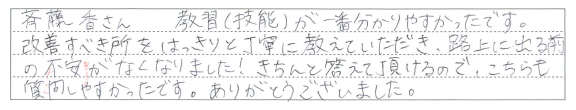 斉藤一香さん　教習(技能)が一番分かりやすかったです。
改善すべき所をはっきりと丁寧に教えていただき、路上に出る前
の不安がなくなりました!きちんと答えて頂けるので、こちらも
質問しやすかったです。ありがとうございました。